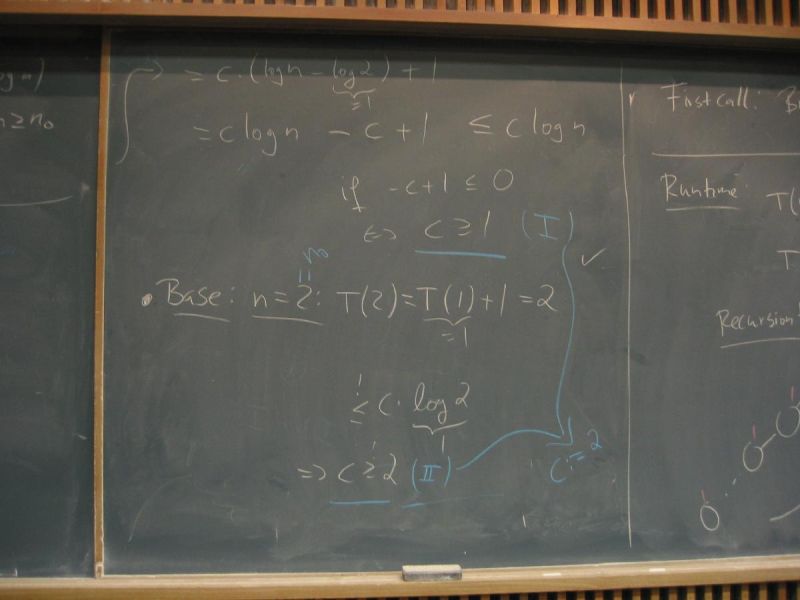 n ≥ n₀
= c · (log n - log 2) + 1
= 1
= c log n - c + 1 ≤ c log n
if -c + 1 ≤ 0
⇔ c ≥ 1 (I) ✓
n₀
=
• Base: n = 2: T(2) = T(1) + 1 = 2
= 1
!
≤ c · log 2
1
⇒ c ≥ 2 (II)
c := 2
First call:
Runtime: T(
T
Recursion